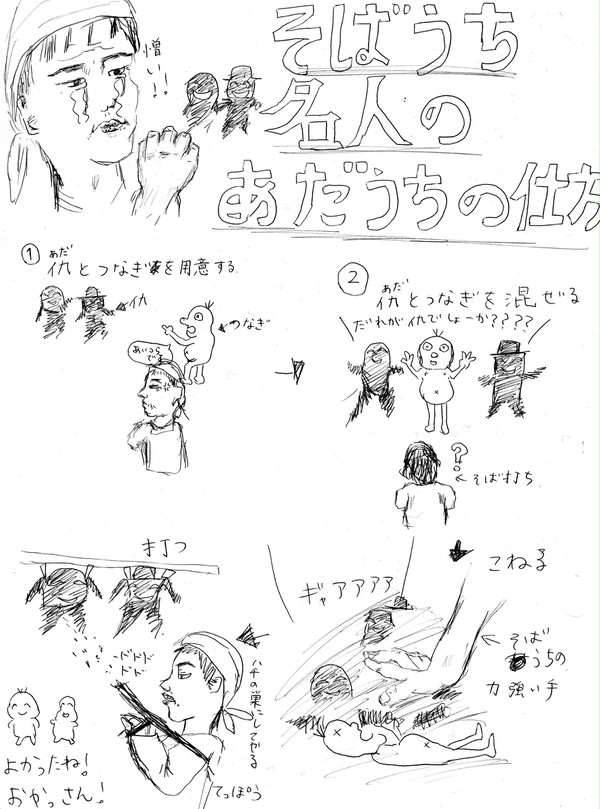 憎い!!
そばうち
名人の
あだうちの仕方
①仇とつなぎを用意する
あだ
仇
つなぎ
あいつら
です
②仇とつなぎを混ぜる
あだ
だれが仇でしょーか????
?
そば打ち
こねる
ギャアアアア
そば
うちの
力強い手
打つ
ドドド
ドド
ハチの巣にしてやる
てっぽう
よかったね!
おかっさん!